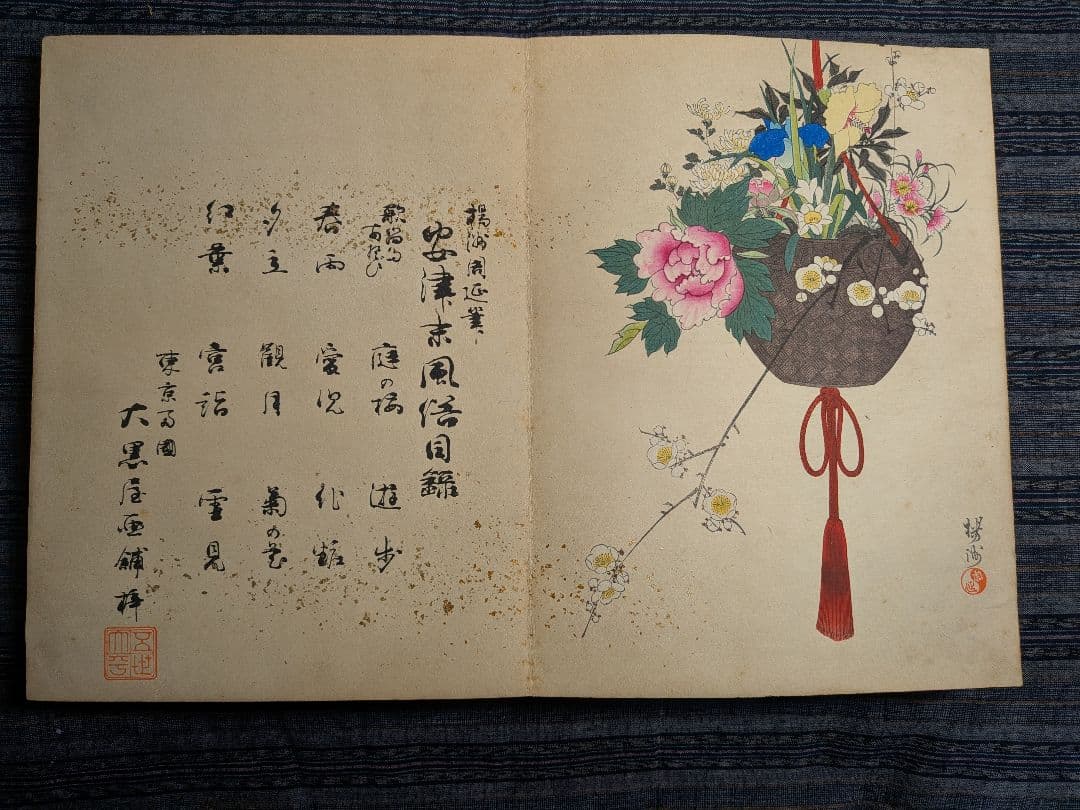 楊洲周延筆
安津末風俗目録
歌留多あそび 庭の梅 遊歩
春雨 愛児 化粧
夕立 觀月 菊の花
紅葉 宮詣 雪見
東京両國
大黒屋画舖梓
楊洲